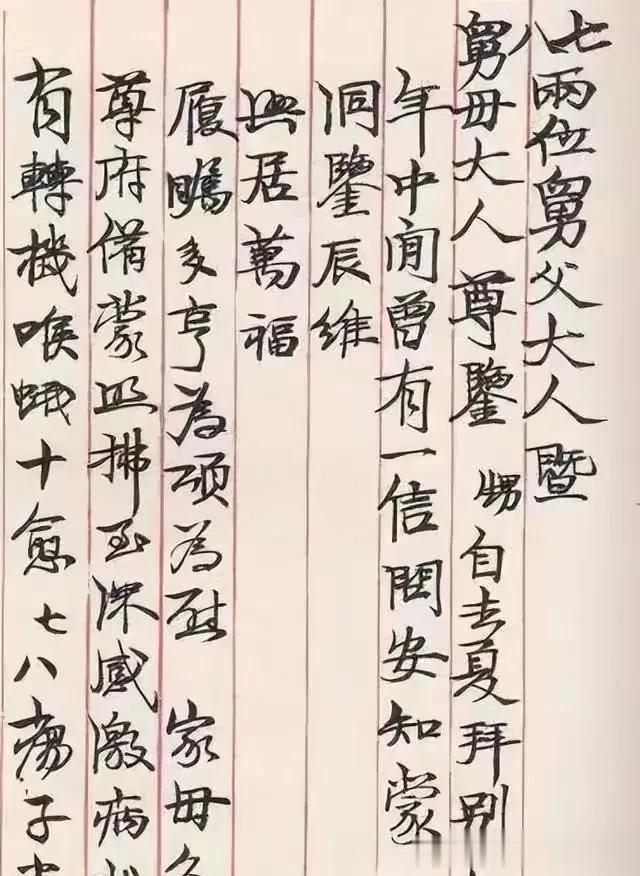 七八兩位舅父大人暨
舅母大人尊鑒 甥自去夏拜别
年中間曾有一信問安知蒙
洞鑒辰維
興居萬福
履祉多亨為頌為慰 家母
尊府備蒙照拂至深感激病
有轉機喉蛾十愈七八瘍子